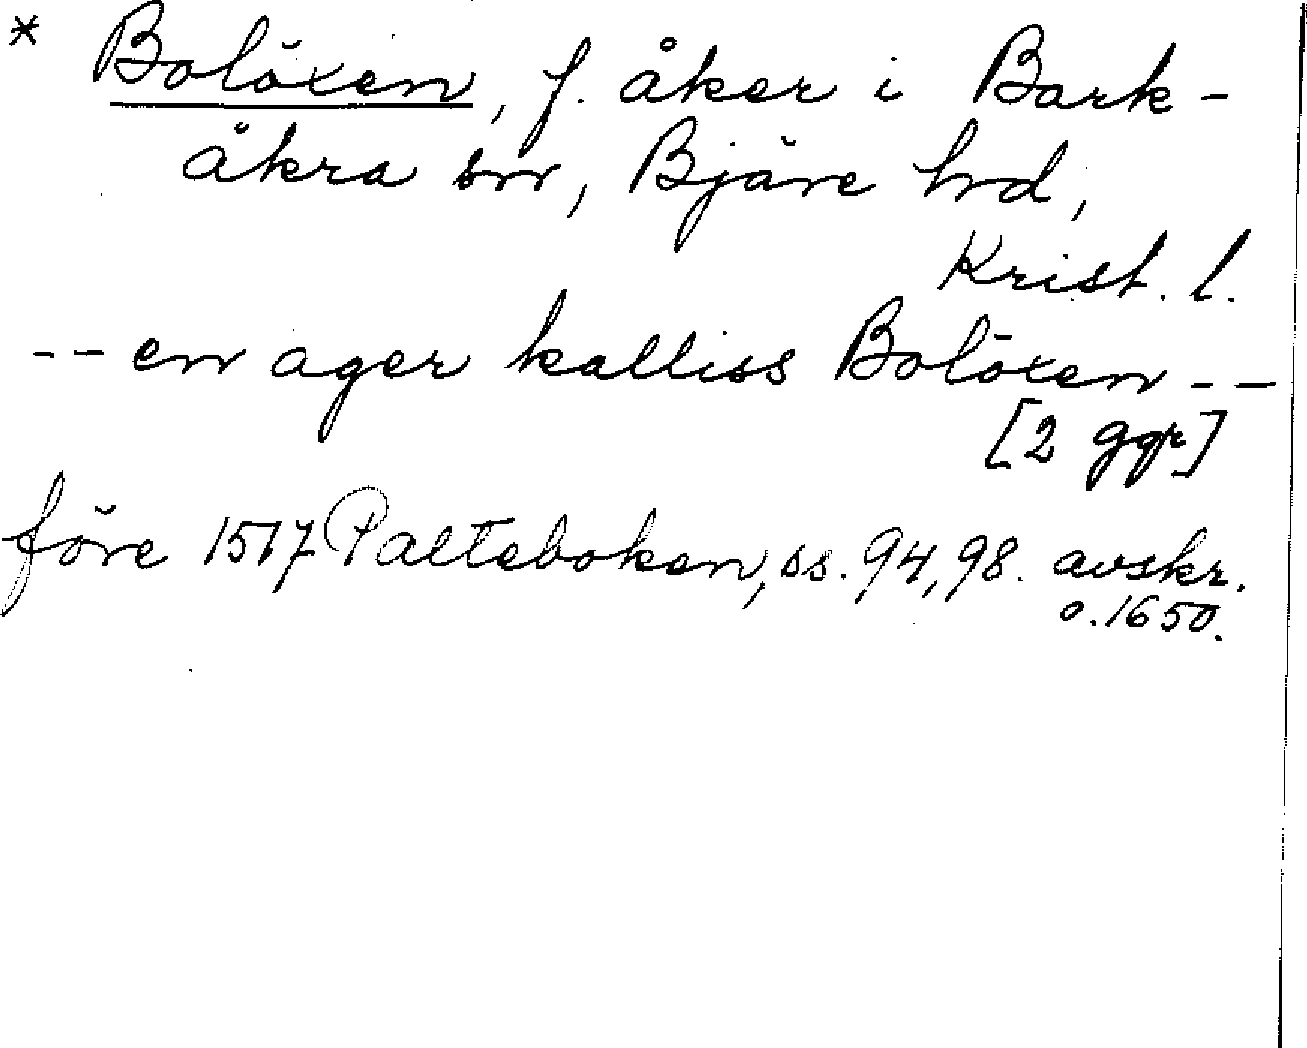 * Bolöxen, f. åker i Bark-
åkra sn, Bjäre hd,
Krist. l.
-- en ager kalliss Bolöxen --
[2 ggr]
före 1517 Palteboken, ss. 94, 98. avskr.
o. 1650.